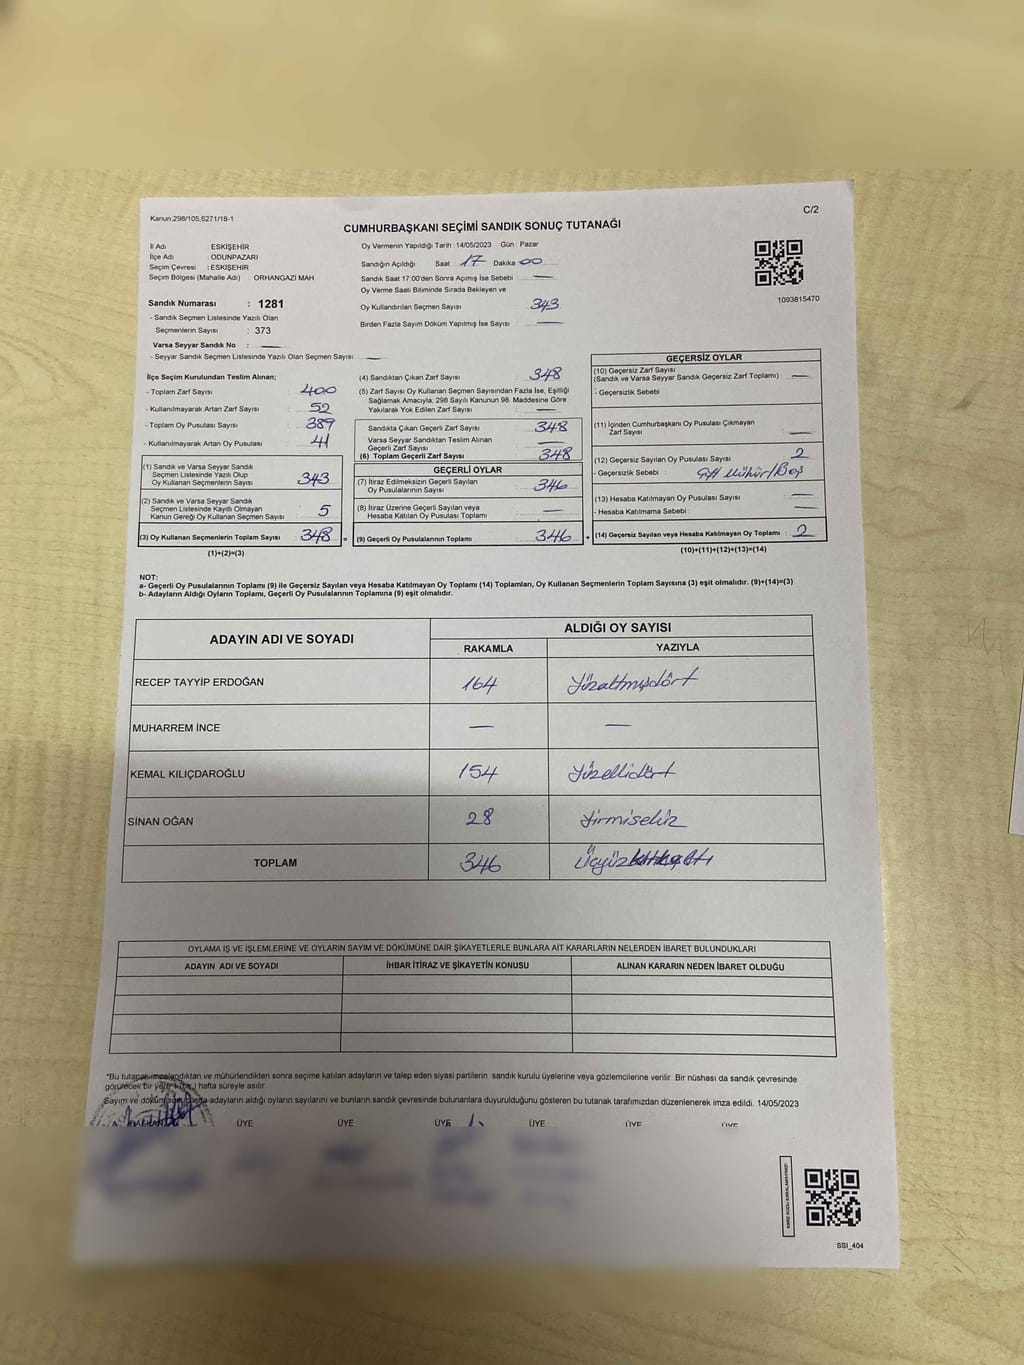 Kanun:298/105,6271/18-1
C/2
CUMHURBAŞKANI SEÇİMİ SANDIK SONUÇ TUTANAĞI
İl Adı : ESKİŞEHİR
İlçe Adı : ODUNPAZARI
Seçim Çevresi : ESKİŞEHİR
Seçim Bölgesi (Mahalle Adı) : ORHANGAZİ MAH.
Sandık Numarası : 1281
- Sandık Seçmen Listesinde Yazılı Olan
Seçmenlerin Sayısı : 373
Varsa Seyyar Sandık No : —
- Seyyar Sandık Seçmen Listesinde Yazılı Olan Seçmen Sayısı: —
Oy Vermenin Yapıldığı Tarih : 14/05/2023 Gün : Pazar
Sandığın Açıldığı Saat 17 Dakika 00
Sandık Saat 17:00'den Sonra Açımış İse Sebebi : —
Oy Verme Saati Bitiminde Sırada Bekleyen ve
Oy Kullandırılan Seçmen Sayısı : 343
Birden Fazla Sayım Döküm Yapılmış İse Sayısı : —
1093815470
İlçe Seçim Kurulundan Teslim Alınan;
- Toplam Zarf Sayısı : 400
- Kullanılmayarak Artan Zarf Sayısı : 52
- Toplam Oy Pusulası Sayısı : 389
- Kullanılmayarak Artan Oy Pusulası : 41
(1) Sandık ve Varsa Seyyar Sandık
Seçmen Listesinde Yazılı Olup
Oy Kullanan Seçmenlerin Sayısı : 343
(2) Sandık ve Varsa Seyyar Sandık
Seçmen Listesinde Kayıtlı Olmayan
Kanun Gereği Oy Kullanan Seçmen Sayısı : 5
(3) Oy Kullanan Seçmenlerin Toplam Sayısı : 348 =
(1)+(2)=(3)
(4) Sandıktan Çıkan Zarf Sayısı : 348
(5) Zarf Sayısı Oy Kullanan Seçmen Sayısından Fazla İse, Eşitliği
Sağlamak Amacıyla, 298 Sayılı Kanunun 98. Maddesine Göre
Yakılarak Yok Edilen Zarf Sayısı : —
Sandıkta Çıkan Geçerli Zarf Sayısı : 348
Varsa Seyyar Sandıktan Teslim Alınan
Geçerli Zarf Sayısı : —
(6) Toplam Geçerli Zarf Sayısı : 348
GEÇERLİ OYLAR
(7) İtiraz Edilmeksizin Geçerli Sayılan
Oy Pusulalarının Sayısı : 346
(8) İtiraz Üzerine Geçerli Sayılan veya
Hesaba Katılan Oy Pusulası Toplamı : —
(9) Geçerli Oy Pusulalarının Toplamı : 346 +
GEÇERSİZ OYLAR
(10) Geçersiz Zarf Sayısı
(Sandık ve Varsa Seyyar Sandık Geçersiz Zarf Toplamı) : —
- Geçersizlik Sebebi :
(11) İçinden Cumhurbaşkanı Oy Pusulası Çıkmayan
Zarf Sayısı : —
(12) Geçersiz Sayılan Oy Pusulası Sayısı : 2
- Geçersizlik Sebebi : Çift Mühür/Boş
(13) Hesaba Katılmayan Oy Pusulası Sayısı : —
- Hesaba Katılmama Sebebi : —
(14) Geçersiz Sayılan veya Hesaba Katılmayan Oy Toplamı : 2
(10)+(11)+(12)+(13)=(14)
NOT:
a- Geçerli Oy Pusulalarının Toplamı (9) ile Geçersiz Sayılan veya Hesaba Katılmayan Oy Toplamı (14) Toplamları, Oy Kullanan Seçmenlerin Toplam Sayısına (3) eşit olmalıdır. (9)+(14)=(3)
b- Adayların Aldığı Oyların Toplamı, Geçerli Oy Pusulalarının Toplamına (9) eşit olmalıdır.
ADAYIN ADI VE SOYADI
ALDIĞI OY SAYISI
RAKAMLA YAZIYLA
RECEP TAYYİP ERDOĞAN 164 Yüzaltmışdört
MUHARREM İNCE — —
KEMAL KILIÇDAROĞLU 154 Yüzellidört
SİNAN OĞAN 28 Yirmisekiz
TOPLAM 346
OYLAMA İŞ VE İŞLEMLERİNE VE OYLARIN SAYIM VE DÖKÜMÜNE DAİR ŞİKAYETLERLE BUNLARA AİT KARARLARIN NELERDEN İBARET BULUNDUKLARI
ADAYIN ADI VE SOYADI İHBAR İTİRAZ VE ŞİKAYETİN KONUSU ALINAN KARARIN NEDEN İBARET OLDUĞU
*Bu tutanak imzalandıktan ve mühürlendikten sonra seçime katılan adayların ve talep eden siyasi partilerin sandık kurulu üyelerine veya gözlemcilerine verilir. Bir nüshası da sandık çevresinde
görülecek bir yere 1 (bir) hafta süreyle asılır.
Sayım ve döküm sonunda adayların aldığı oyların sayılarını ve bunların sandık çevresinde bulunanlara duyurulduğunu gösteren bu tutanak tarafımızdan düzenlenerek imza edildi. 14/05/2023
ÜYE ÜYE ÜYE ÜYE ÜYE ÜYE
SSI_404